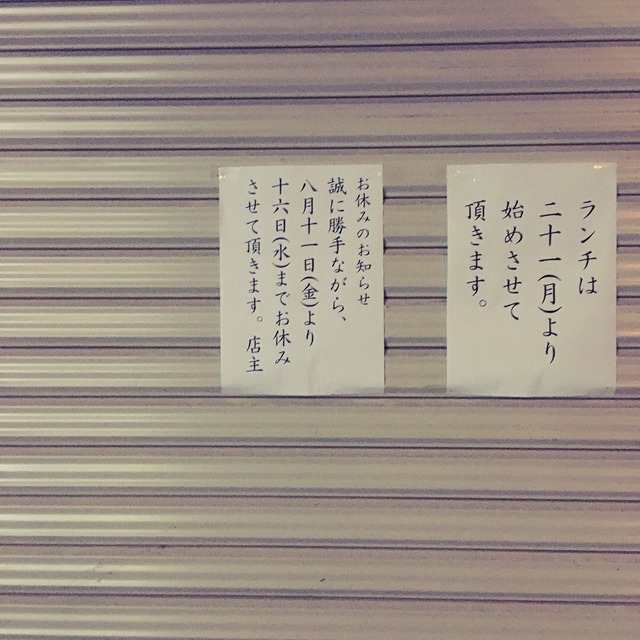 ランチは
二十一(月)より
始めさせて
頂きます。
お休みのお知らせ
誠に勝手ながら、
八月十一日(金)より
十六日(水)までお休み
させて頂きます。店主